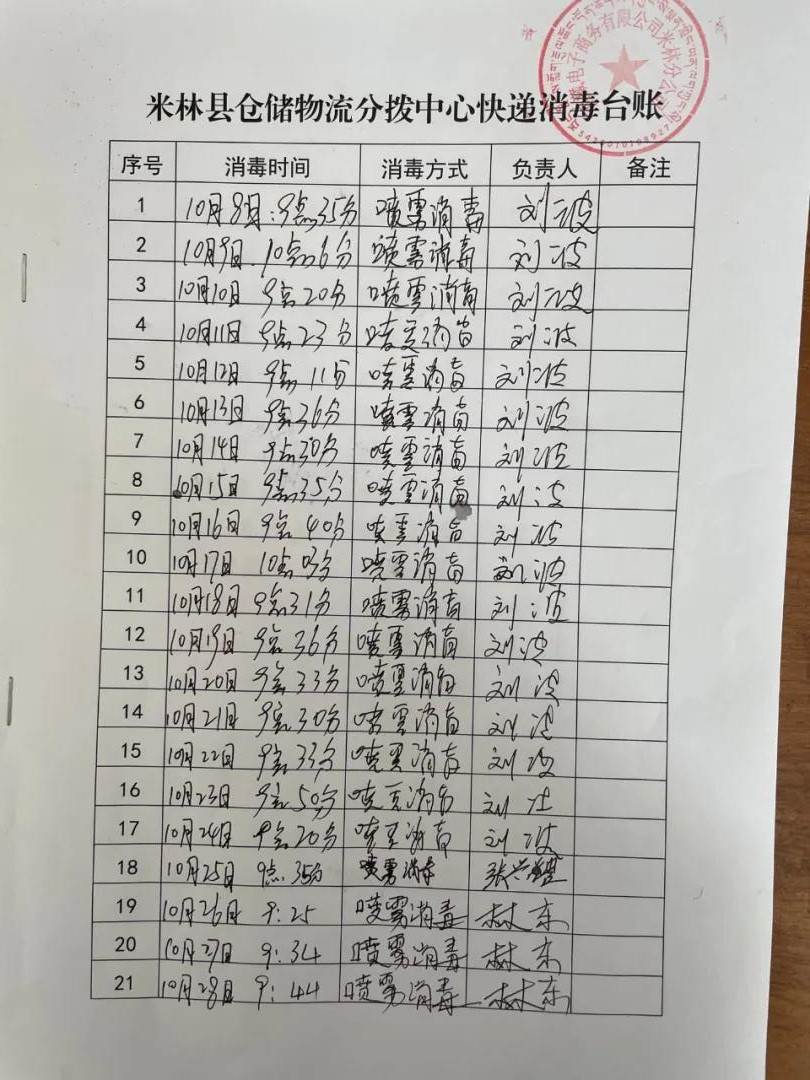 电子商务有限公司米林分公司
米林县仓储物流分拨中心快递消毒台账
序号 消毒时间 消毒方式 负责人 备注
1 10月8日:9点35分 喷雾消毒 刘波
2 10月9日.10点06分 喷雾消毒 刘波
3 10月10日 9点20分 喷雾消毒 刘波
4 10月11日 9点23分 喷雾消毒 刘波
5 10月12日 9点11分 喷雾消毒 刘波
6 10月13日 9点36分 喷雾消毒 刘波
7 10月14日 9点30分 喷雾消毒 刘波
8 10月15日 9点35分 喷雾消毒 刘波
9 10月16日 9点40分 喷雾消毒 刘波
10 10月17日 10点03分 喷雾消毒 刘波
11 10月18日 9点31分 喷雾消毒 刘波
12 10月19日 9点36分 喷雾消毒 刘波
13 10月20日 9点33分 喷雾消毒 刘波
14 10月21日 9点30分 喷雾消毒 刘波
15 10月22日 9点33分 喷雾消毒 刘波
16 10月23日 9点50分 喷雾消毒 刘波
17 10月24日 9点20分 喷雾消毒 刘波
18 10月25日 9点.35分 喷雾消毒
19 10月26日 9:25 喷雾消毒 林东
20 10月27日 9:34 喷雾消毒 林东
21 10月28日 9:44 喷雾消毒 林东